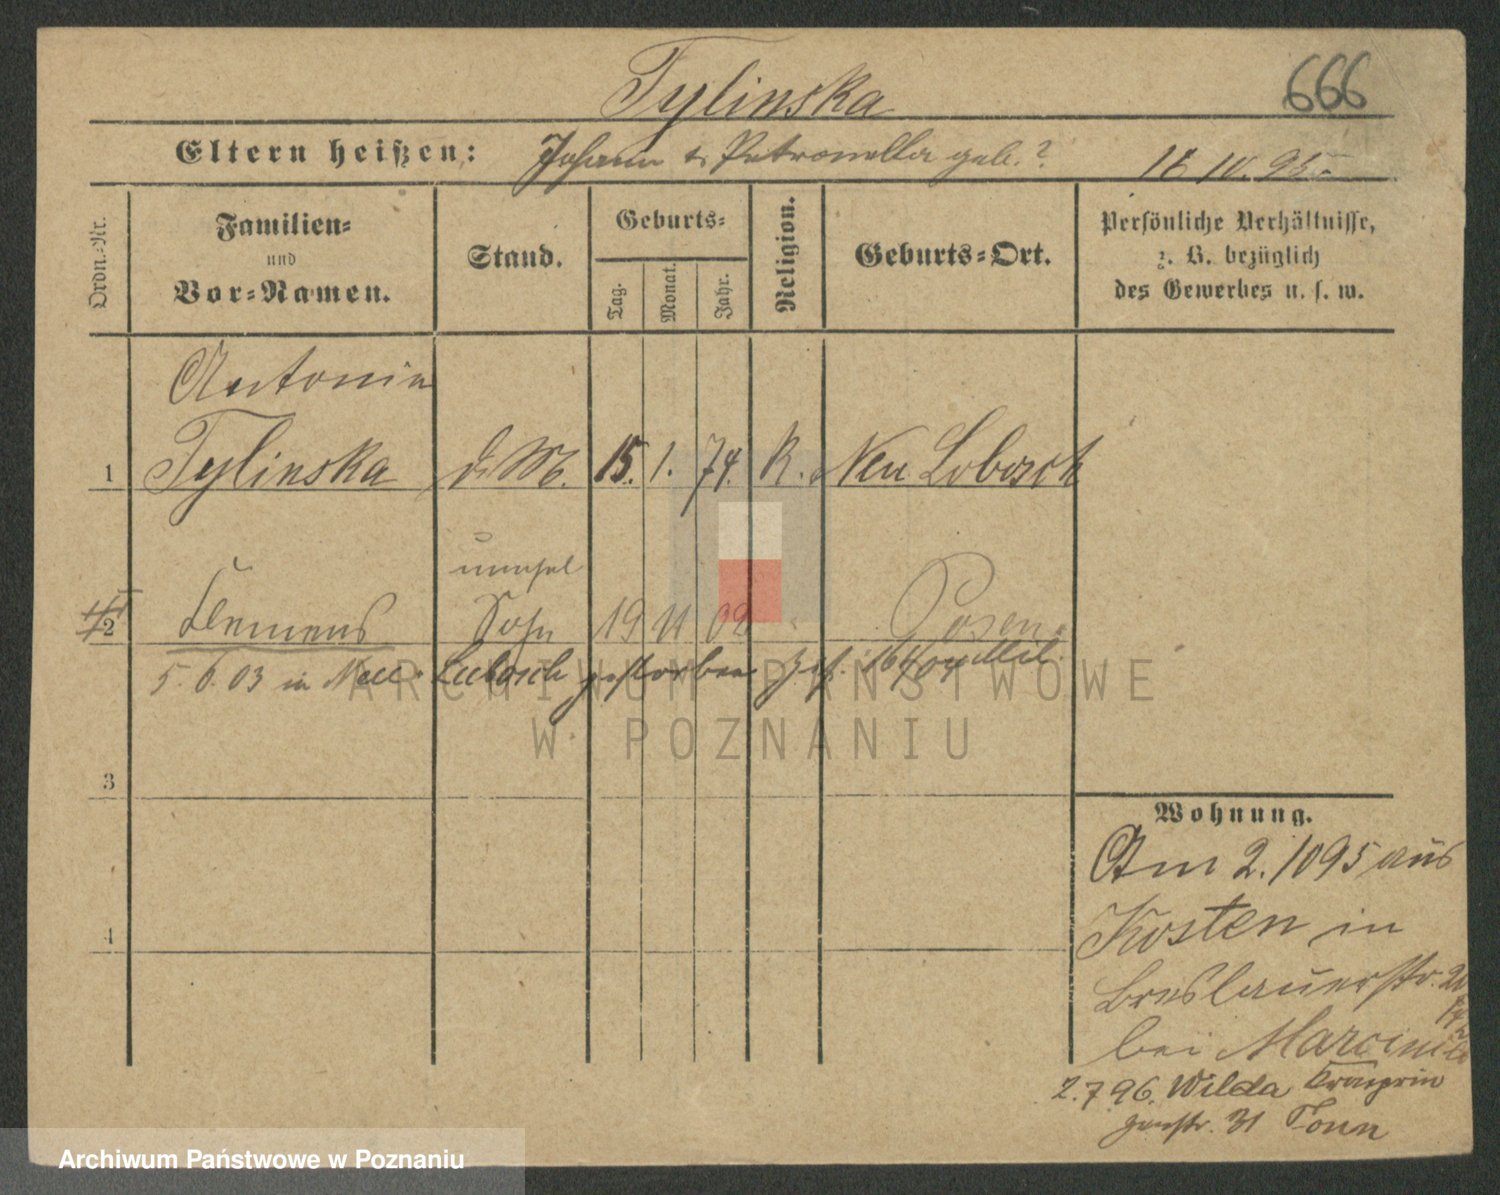 Tylinska
666
Eltern heißen: Johann & Petronella geb. ?
Ordn.-Nr.
Familien=
und
Vor=Namen.
Stand.
Geburts=
Tag.
Monat.
Jahr.
Religion.
Geburts=Ort.
Persönliche Verhältnisse,
z. B. bezüglich
des Gewerbes u. s. w.
Antonie
1 Tylinska d. M. 15. 1. 74. K. Neu Lobosch
unehel
2 Clemens Sohn 19 11 02 Posen
5.6.03 in Neu Lubosch gestorben
3
4
Wohnung.
Am 2. 10 95 aus
Kosten in
Breslauerstr.
bei
2.7 96. Wilda Kronprin
zenstr. 31
ARCHIWUM PAŃSTWOWE
W POZNANIU
Archiwum Państwowe w Poznaniu